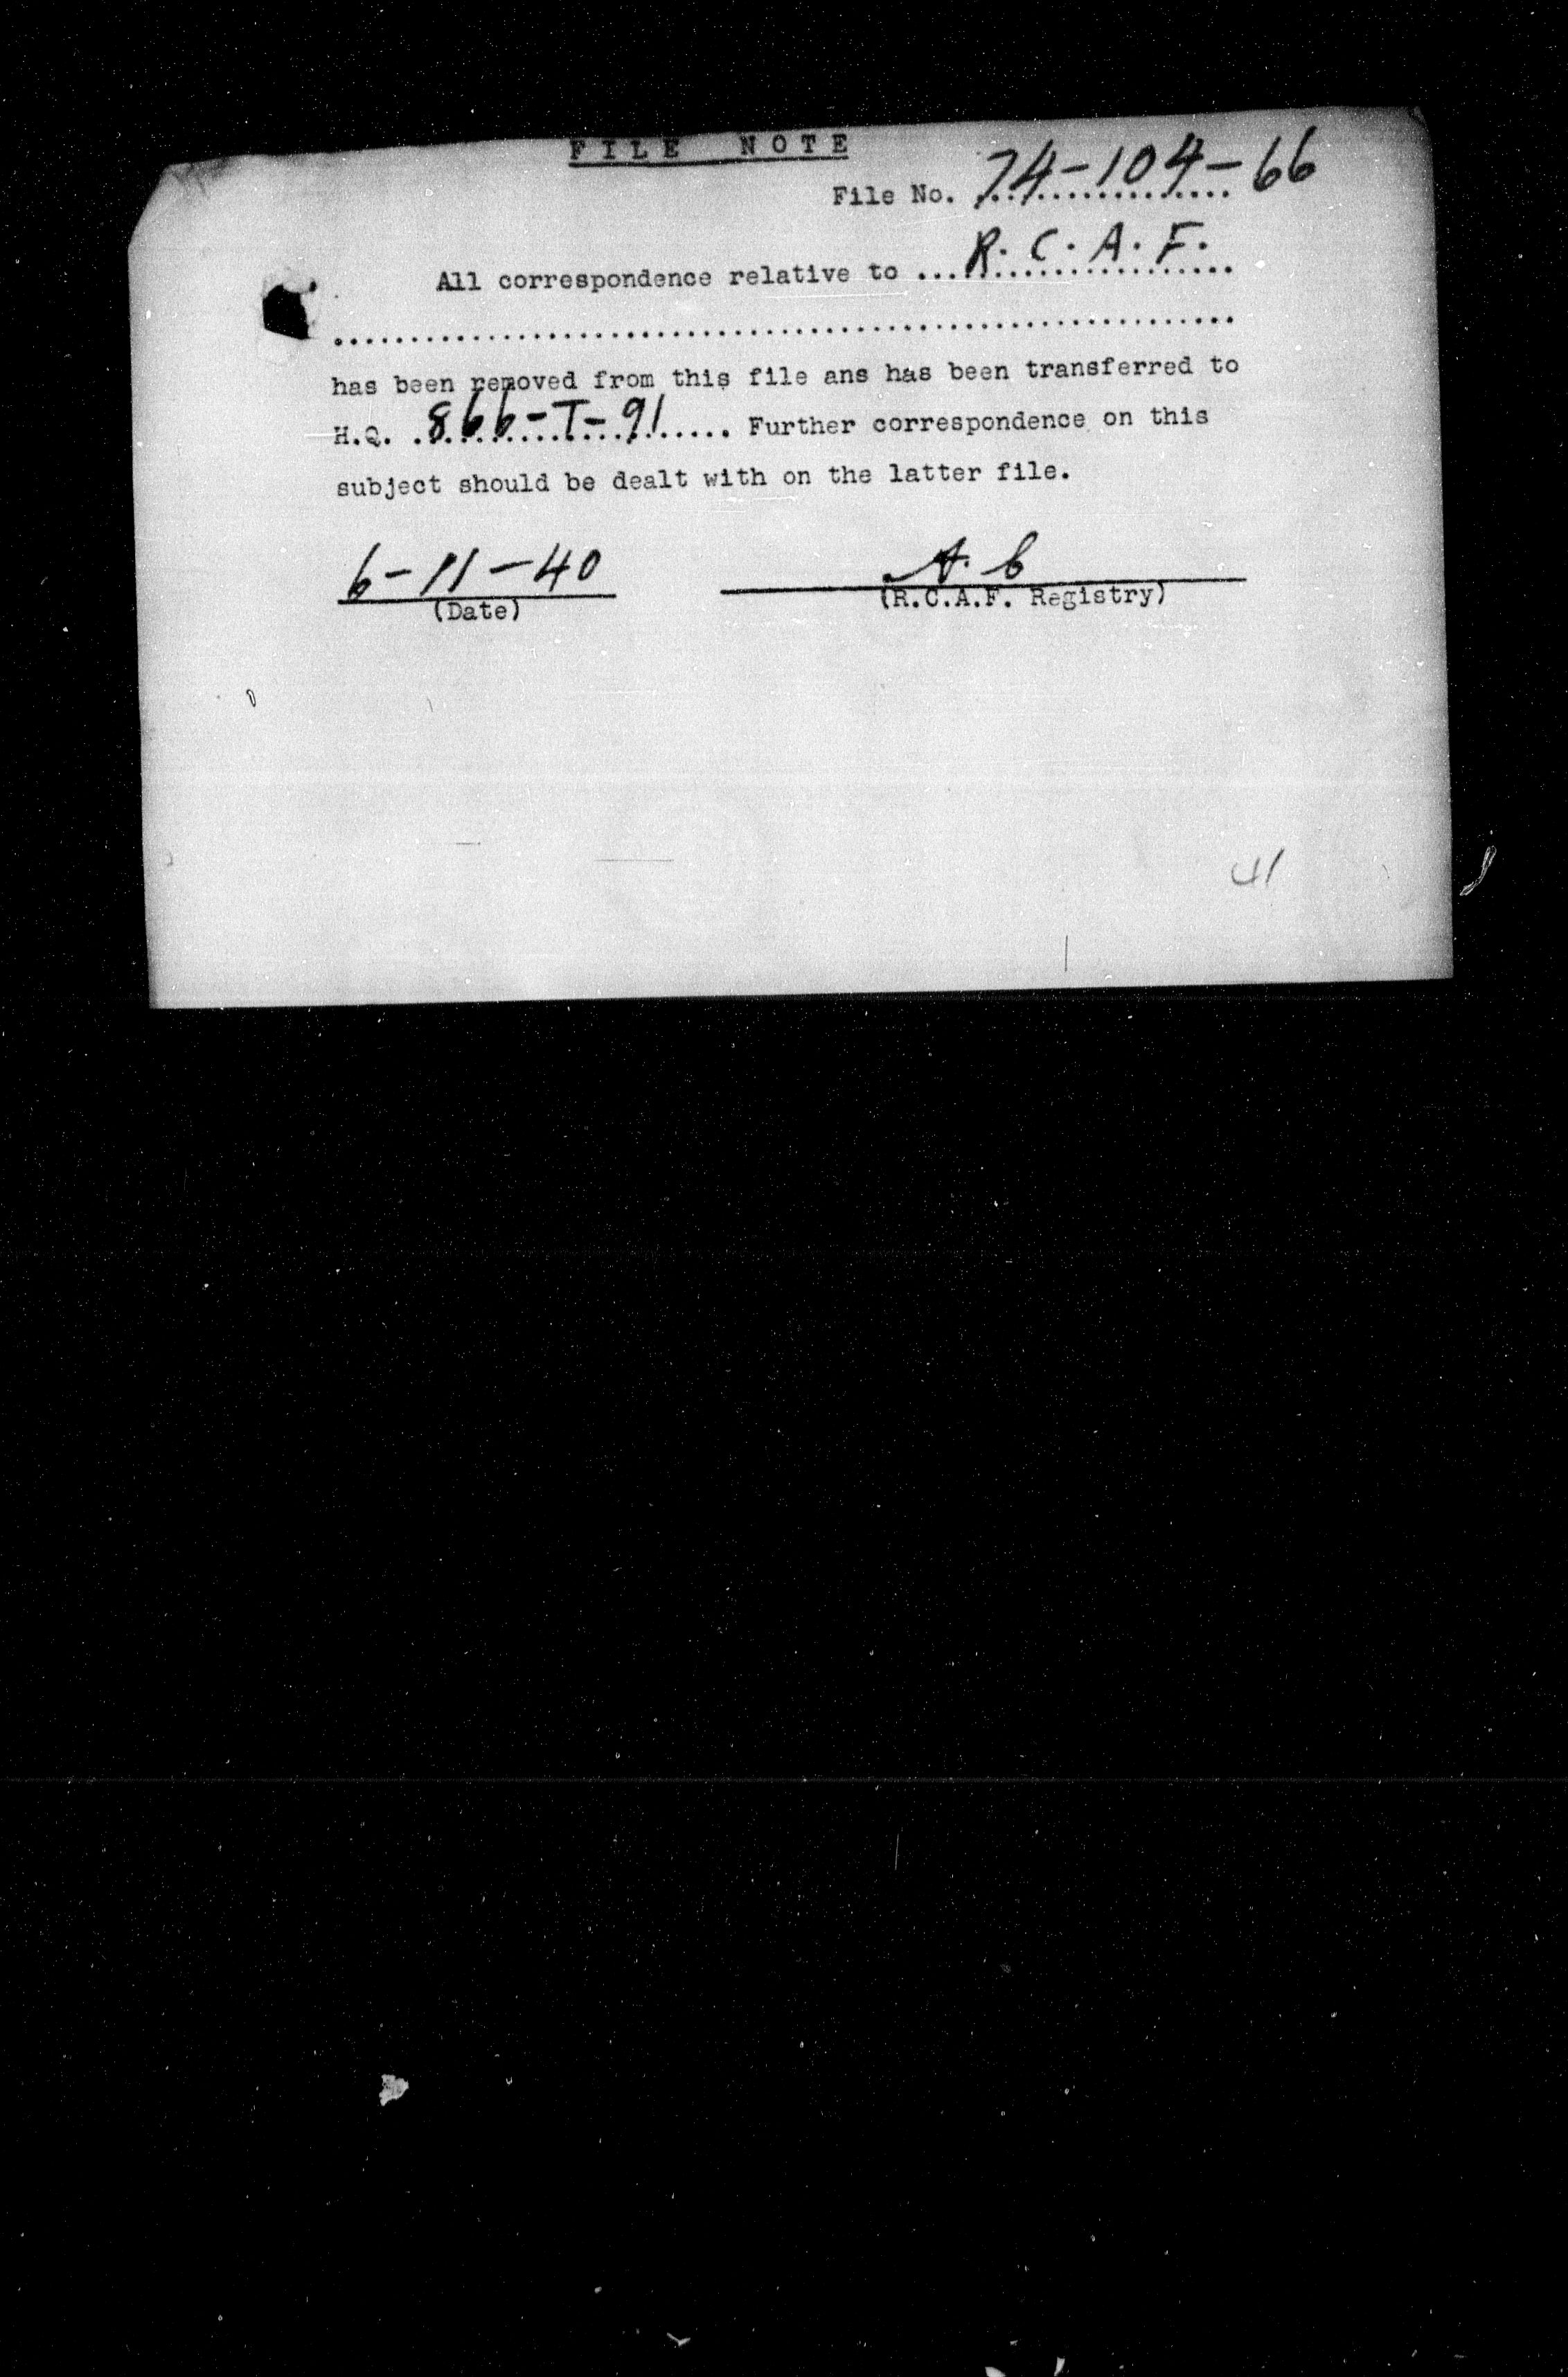 FILE NOTE
File No. 74-104-66
All correspondence relative to ... R. C. A. F.
has been removed from this file ans has been transferred to
H.Q. 866-T-91 Further correspondence on this
subject should be dealt with on the latter file.
6-11-40 A. C
(Date) (R.C.A.F. Registry)
41